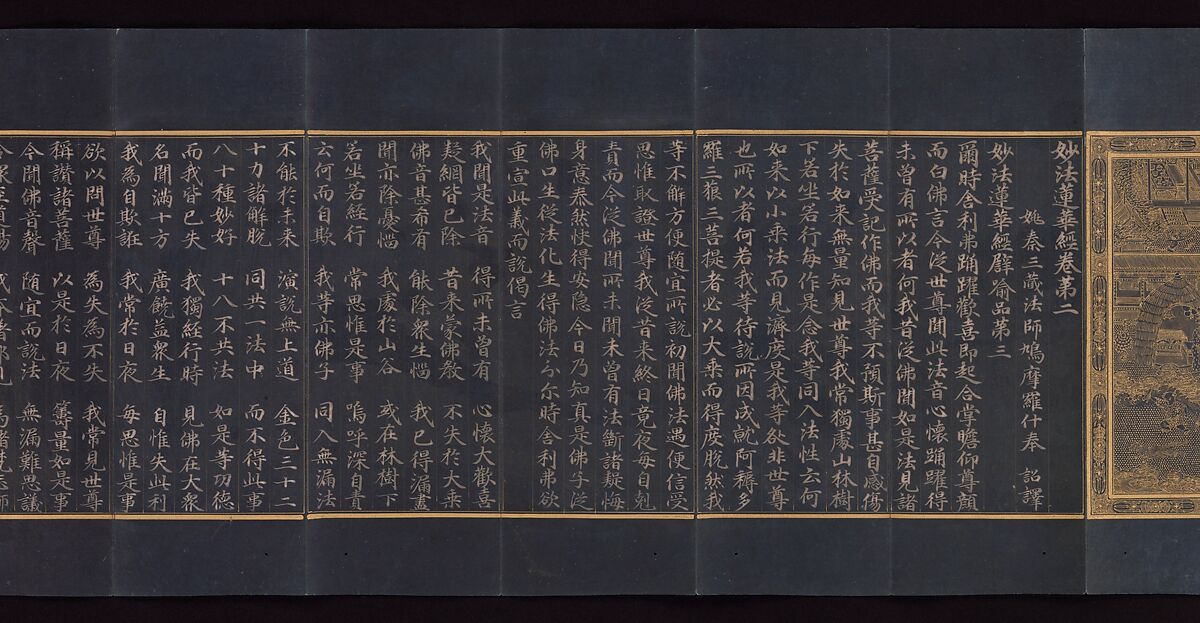 妙法蓮華經卷第二
姚秦三藏法師鳩摩羅什奉 詔譯
妙法蓮華經譬喻品第三
爾時舍利弗踊躍歡喜即起合掌瞻仰尊顏
而白佛言今從世尊聞此法音心懷踊躍得
未曾有所以者何我昔從佛聞如是法見諸
菩薩受記作佛而我等不預斯事甚自感傷
失於如來無量知見世尊我常獨處山林樹
下若坐若行每作是念我等同入法性云何
如來以小乘法而見濟度是我等咎非世尊
也所以者何若我等待說所因成就阿耨多
羅三藐三菩提者必以大乘而得度脫然我
等不解方便随宜所說初聞佛法遇便信受
思惟取證世尊我從昔來終日竟夜每自剋
責而今從佛聞所未聞未曾有法斷諸疑悔
身意泰然快得安隐今日乃知真是佛子從
佛口生從法化生得佛法分尒時舍利弗欲
重宣此義而說偈言
我聞是法音 得所未曾有 心懷大歡喜
疑網皆已除 昔來蒙佛教 不失於大乘
佛音甚希有 能除衆生惱 我已得漏盡
聞亦除憂惱 我處於山谷 或在林樹下
若坐若經行 常思惟是事 嗚呼深自責
云何而自欺 我等亦佛子 同入無漏法
不能於未來 演說無上道 金色三十二
十力諸解脫 同共一法中 而不得此事
八十種妙好 十八不共法 如是等功德
而我皆已失 我獨經行時 見佛在大衆
名聞滿十方 廣饒益衆生 自惟失此利
我為自欺誑 我常於日夜 每思惟是事
欲以問世尊 為失為不失 我常見世尊
稱讚諸菩薩 以是於日夜 籌量如是事
今聞佛音聲 随宜而說法 無漏難思議